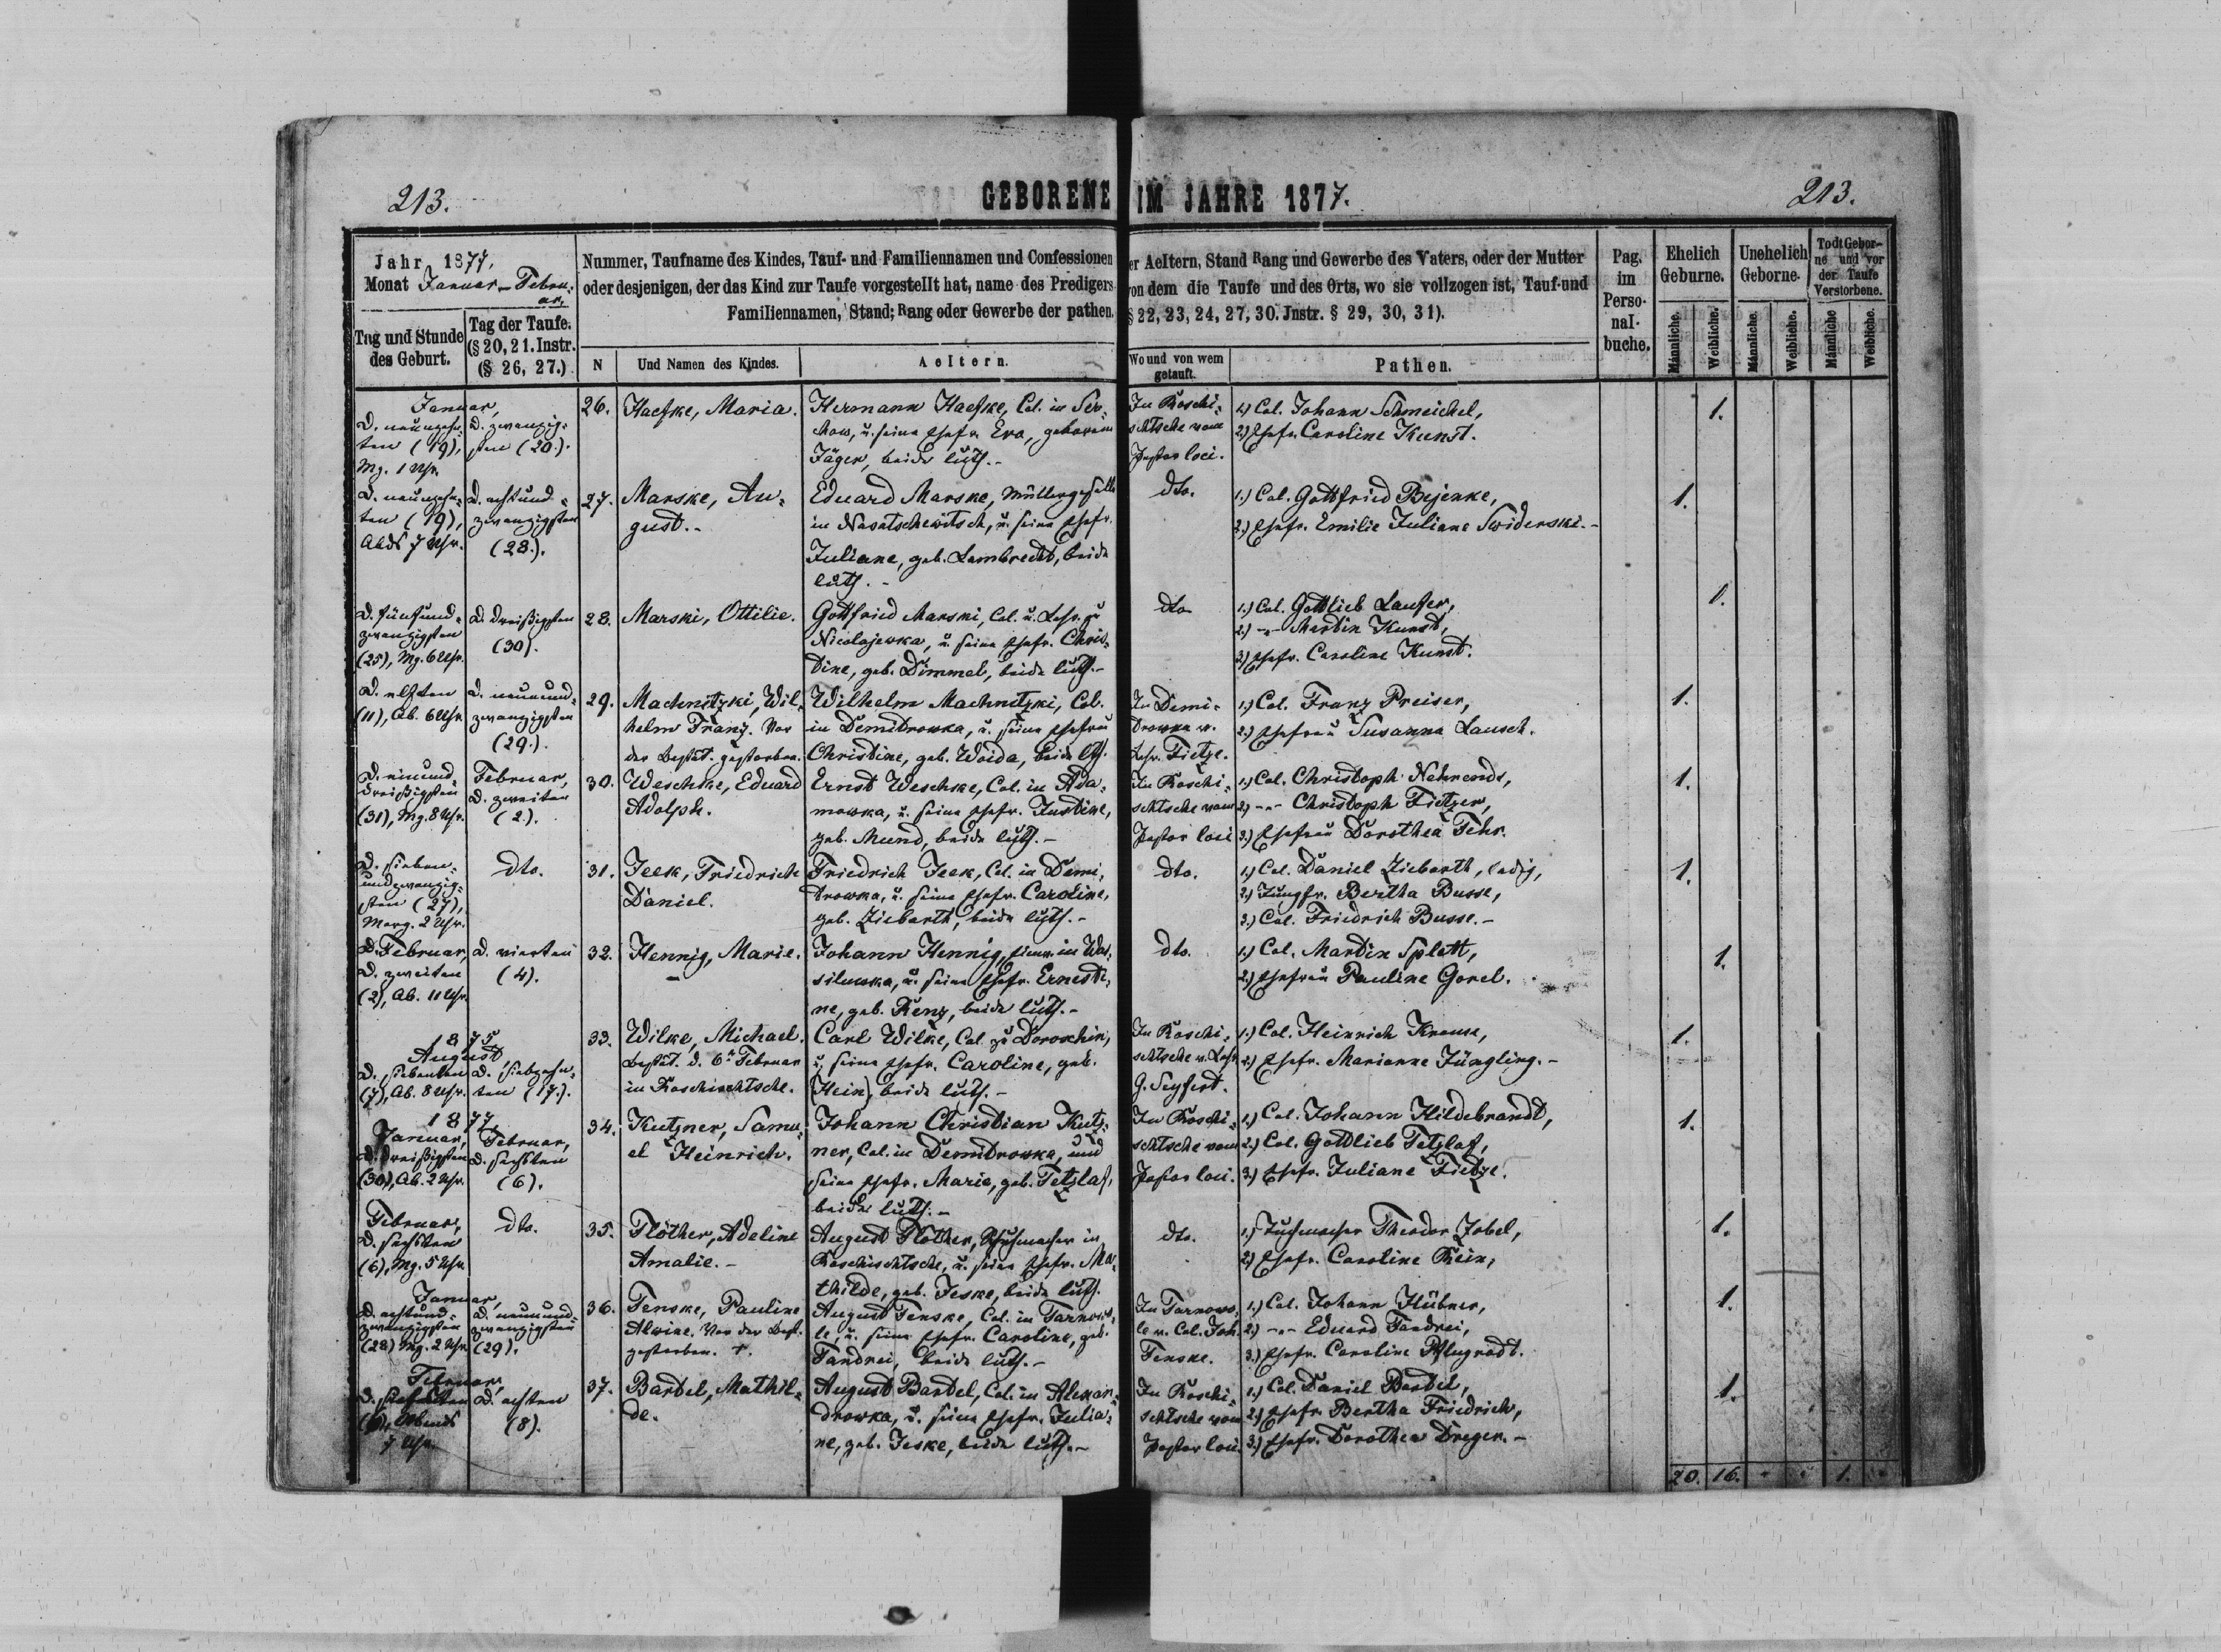 213.
GEBORENE IM JAHRE 1877.
213.
Jahr 1877,
Monat Januar - Febru-
ar,
Tag und Stunde
des Geburt.
Tag der Taufe.
(§ 20, 21. Instr.
(§ 26, 27.)
Nummer, Taufname des Kindes, Tauf- und Familiennamen und Confessionen der Aeltern, Stand Rang und Gewerbe des Vaters, oder der Mutter
oder desjenigen, der das Kind zur Taufe vorgestellt hat, name des Predigers von dem die Taufe und des Orts, wo sie vollzogen ist, Tauf- und
Familiennamen, Stand; Rang oder Gewerbe der pathen. § 22, 23, 24, 27, 30. Jnstr. § 29, 30, 31).
N
Und Namen des Kindes.
Aeltern.
Wo und von wem
getauft.
Pathen.
Pag.
im
Perso-
nal-
buche.
Ehelich
Geburne.
Unehelich
Geborne.
Todt Gebor-
ne und vor
der Taufe
Verstorbene.
Männliche.
Weibliche.
Männliche.
Weibliche.
Männliche
Weibliche.
Januar,
D. neunzehn-
ten (19),
Mg. 1 Uhr.
D. zwanzig-
sten (20.).
26.
Haefke, Maria.
Hermann Haefke, Col. in Ser-
chow, u. seine Ehefr. Eva, geborene
Jäger, beide luth.-
In Roschi-
schtsche vom
Pastor loci.
1.) Col. Johann Schmeichel,
2.) Ehefr. Caroline Kunst.
1.
D. neunzehn-
ten (19),
Abds 7 Uhr.
D. achtund-
zwanzigsten
(28.).
27.
Marske, Au-
gust.-
Eduard Marske, Müllergeselle
in Nasatschewitsch, u. seine Ehefr.
Juliane, geb. Lambrecht, beide
luth.-
dto.
1.) Col. Gottfried Bejenke,
2.) Ehefr. Emilie Juliane Swiderski.-
1.
D. fünfund-
zwanzigsten
(25), Mg. 6 Uhr.
D. dreißigsten
(30).
28.
Marski, Ottilie.
Gottfried Marski, Col. u. Lehr. zu
Nicolajewka, u. seine Ehefr. Chris-
tine, geb. Dimmel, beide luth.-
dto
1.) Col. Gottlieb Laufer,
2.) -"- Martin Kunst,
3.) Ehefr. Caroline Kunst.
1.
D. elften
(11), Ab. 6 Uhr
D. neunund-
zwanzigsten
(29.).
29.
Machnitzki, Wil-
helm Franz. Vor
der Bestät. gestorben.
Wilhelm Machnitzki, Col.
in Demidrowka, u. seine Ehefrau
Christine, geb. Woida, beide lth.
In Demi-
drowka v.
Lehr. Tietze.
1.) Col. Franz Preiser,
2.) Ehefrau Susanna Lausch.
1.
D. einund-
dreißigsten
(31), Mg. 8 Uhr.
Februar,
D. zweiten
(2.).
30.
Weschke, Eduard
Adolph.
Ernst Weschke, Col. in Ada-
mowka, u. seine Ehefr. Justine,
geb. Mund, beide luth.-
In Roschi-
schtsche vom
Pastor loci
1.) Col. Christoph Nehrends,
2.) -"- Christoph Tietzer,
3.) Ehefrau Dorothea Fehr.
1.
D. sieben-
undzwanzig-
sten (27),
Morg. 2 Uhr.
dto.
31.
Jeek, Friedrich
Daniel.
Friedrich Jeek, Col. in Demi-
drowka, u. seine Ehefr. Caroline,
geb. Ziebarth, beide luth.-
dto.
1.) Col. Daniel Ziebarth, ledig,
2.) Jungfr. Bertha Busse,
3.) Col. Friedrich Busse.-
1.
D. Februar,
D. zweiten
(2), Ab. 11 Uhr.
D. vierten
(4).
32.
Hennig, Marie.
Johann Hennig, in Was-
silewka, u. seine Ehefr. Ernesti-
ne, geb. Renz, beide luth.-
dto.
1.) Col. Martin Splett,
2.) Ehefrau Pauline Gorel.
1.
1875
August,
D. siebenten
(7), Ab. 8 Uhr.
D. siebzehn-
ten (17.).
33.
Wilke, Michael.
Bestät. d. 6n Februar
in Roschischtsche.
Carl Wilke, Col. zu Doroschin,
u. seine Ehefr. Caroline, geb.
(Hein), beide luth.-
In Roschi-
schtsche v. Lehr.
G. Seyfert.
1.) Col. Heinrich Krause,
2.) Ehefr. Marianne Jüngling.-
1.
1877.
Januar,
D. dreißigsten
(30), Ab. 2 Uhr.
Februar,
D. sechsten
(6).
34.
Kutzner, Samu-
el Heinrich.
Johann Christian Kutz-
ner, Col. in Demidrowka, und
seine Ehefr. Marie, geb. Tetzlaf,
beide luth.-
In Roschi-
schtsche vom
Pastor loci.
1.) Col. Johann Hildebrandt,
2.) Col. Gottlieb Tetzlaf,
3.) Ehefr. Juliane Tietze.
1.
Februar,
D. sechsten
(6), Mg. 5 Uhr.
dto.
35.
Flöther, Adeline
Amalie.-
August Flöther, Tuchmacher in
Roschischtsche, u. seine Ehefr. Ma-
thilde, geb. Jeske, beide luth.
dto.
1.) Tuchmacher Theodor Zobel,
2.) Ehefr. Caroline Klein,
1.
Januar,
D. achtund-
zwanzigsten
(28) Mg. 2 Uhr
D. neunund-
zwanzigsten
(29).
36.
Fenske, Pauline
Alwine. Vor der Best.
gestorben. †.
August Fenske, Col. in Tarnows-
le, u. seine Ehefr. Caroline, geb.
Fandrei, beide luth.-
In Tarnows-
le v. Col. Joh.
Fenske.
1.) Col. Johann Hübner,
2.) -"- Eduard Fandrei,
3.) Ehefr. Caroline Pflugradt.
1.
Februar,
D.
Abends
7 Uhr.
D. achten
(8).
37.
Bartel, Mathil-
de.
August Bartel, Col. in Alexan-
drowka, u. seine Ehefr. Julia-
ne, geb. Jeske, beide luth.-
In Roschi-
schtsche vom
Pastor loci.
1.) Col. Daniel Bartel,
2.) Ehefr. Bertha Friedrich,
3.) Ehefr. Dorothea Dreger.-
1.
20. 16. " " 1. "